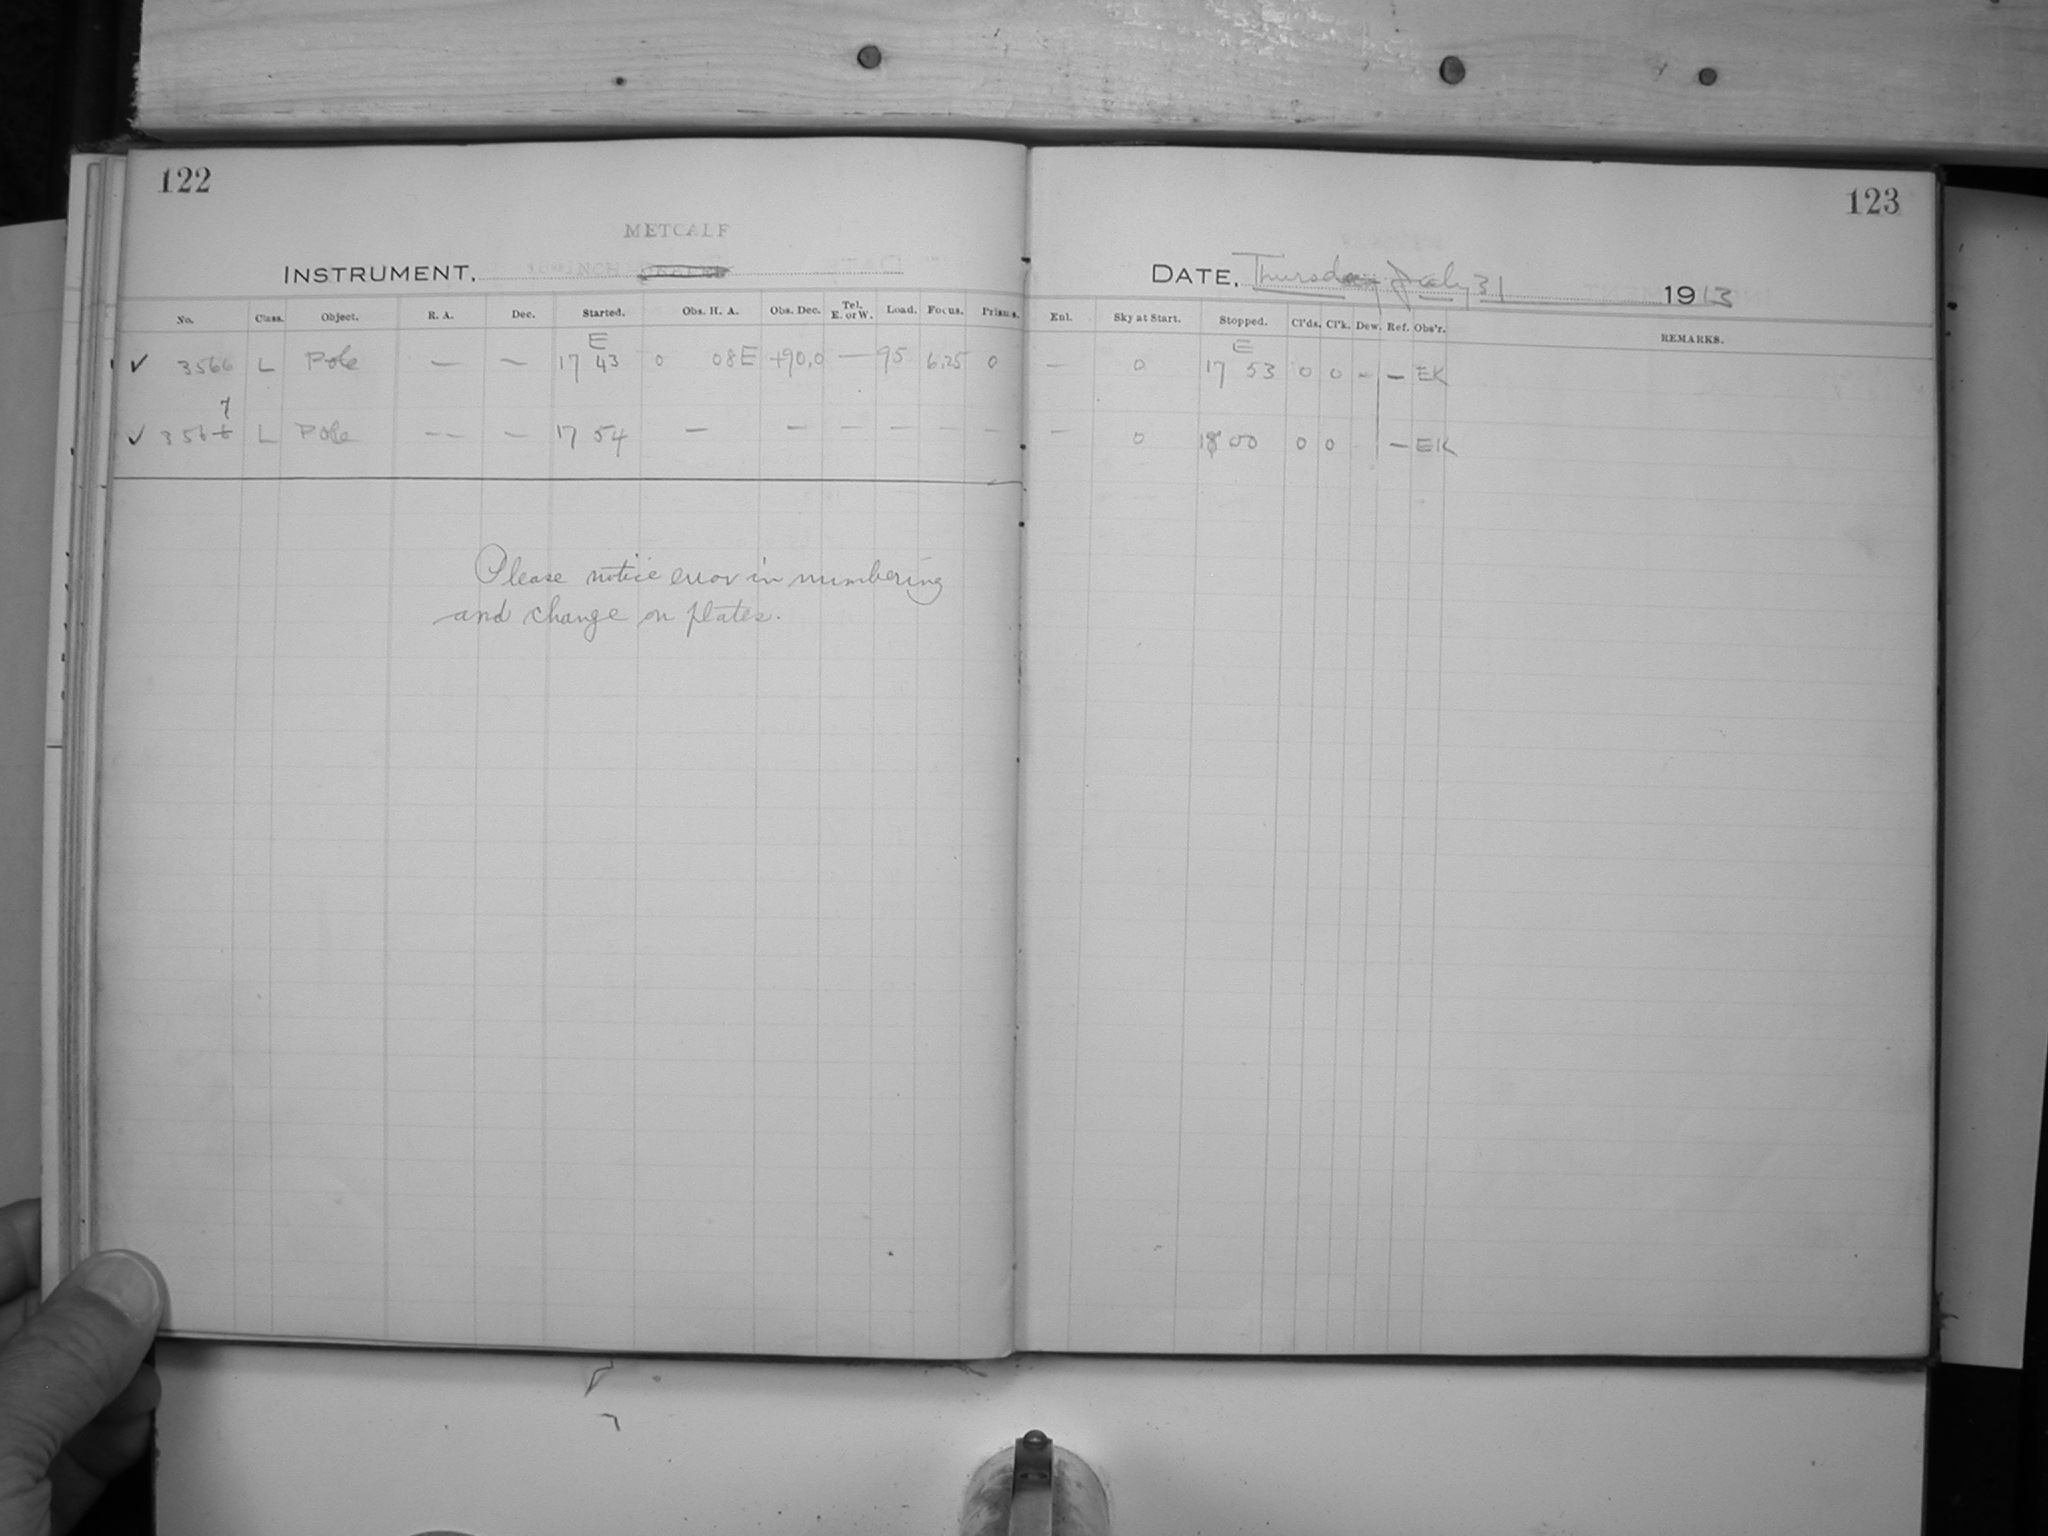 122
METCALF
INSTRUMENT,
No. Class. Object. R. A. Dec. Started. Obs. H. A. Obs. Dec. Tel. E. or W. Load. Focus. Prisms.
E
✓ 3566 L Pole — — 17 43 0 08E +90.0 — 95 6.25 0
7
✓ 3566 L Pole -- — 17 54 — — — — — —
Please notice error in numbering
and change on plates.
123
DATE, Thursday July 31 1913
Enl. Sky at Start. Stopped. Cl'ds. Cl'k. Dew. Ref. Obs'r. REMARKS.
E
— 0 17 53 0 0 - — EK
— 0 18 00 0 0 — EK